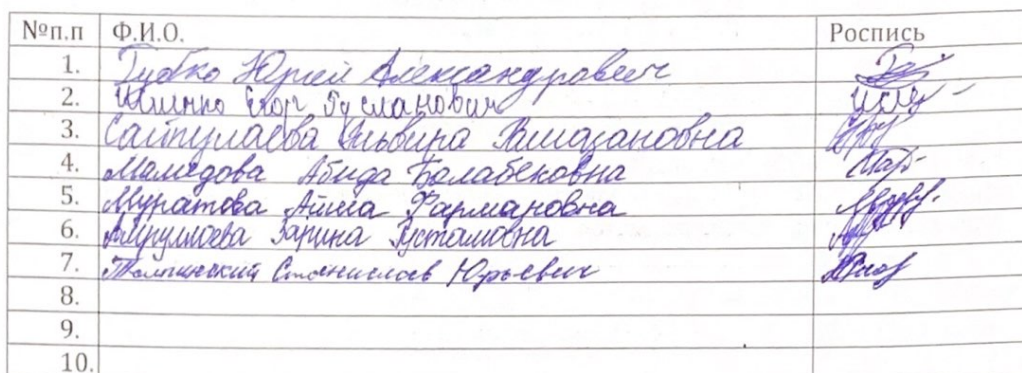 №п.п Ф.И.О. Роспись
1. Губко Юрий Александрович
2. Егор Русланович
3. Сайпулаева Эльвина Рамазановна
4. Мамедова Абида Балабековна
5. Муратова Айша Фармановна
6. Зарина Рустамовна
7. Станислав Юрьевич
8.
9.
10.